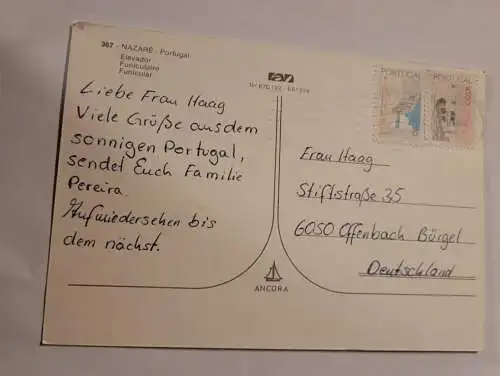 367 - NAZARÉ - Portugal
Elevador
Funiculaire
Funicular
Liebe Frau Haag
Viele Grüße aus dem
sonnigen Portugal,
sendet Euch Familie
Pereira.
Aufwiedersehen bis
dem nächst.
ANCORA
PORTUGAL
PORTUGAL
Frau Haag
Stiftstraße 35
6050 Offenbach Bürgel
Deutschland